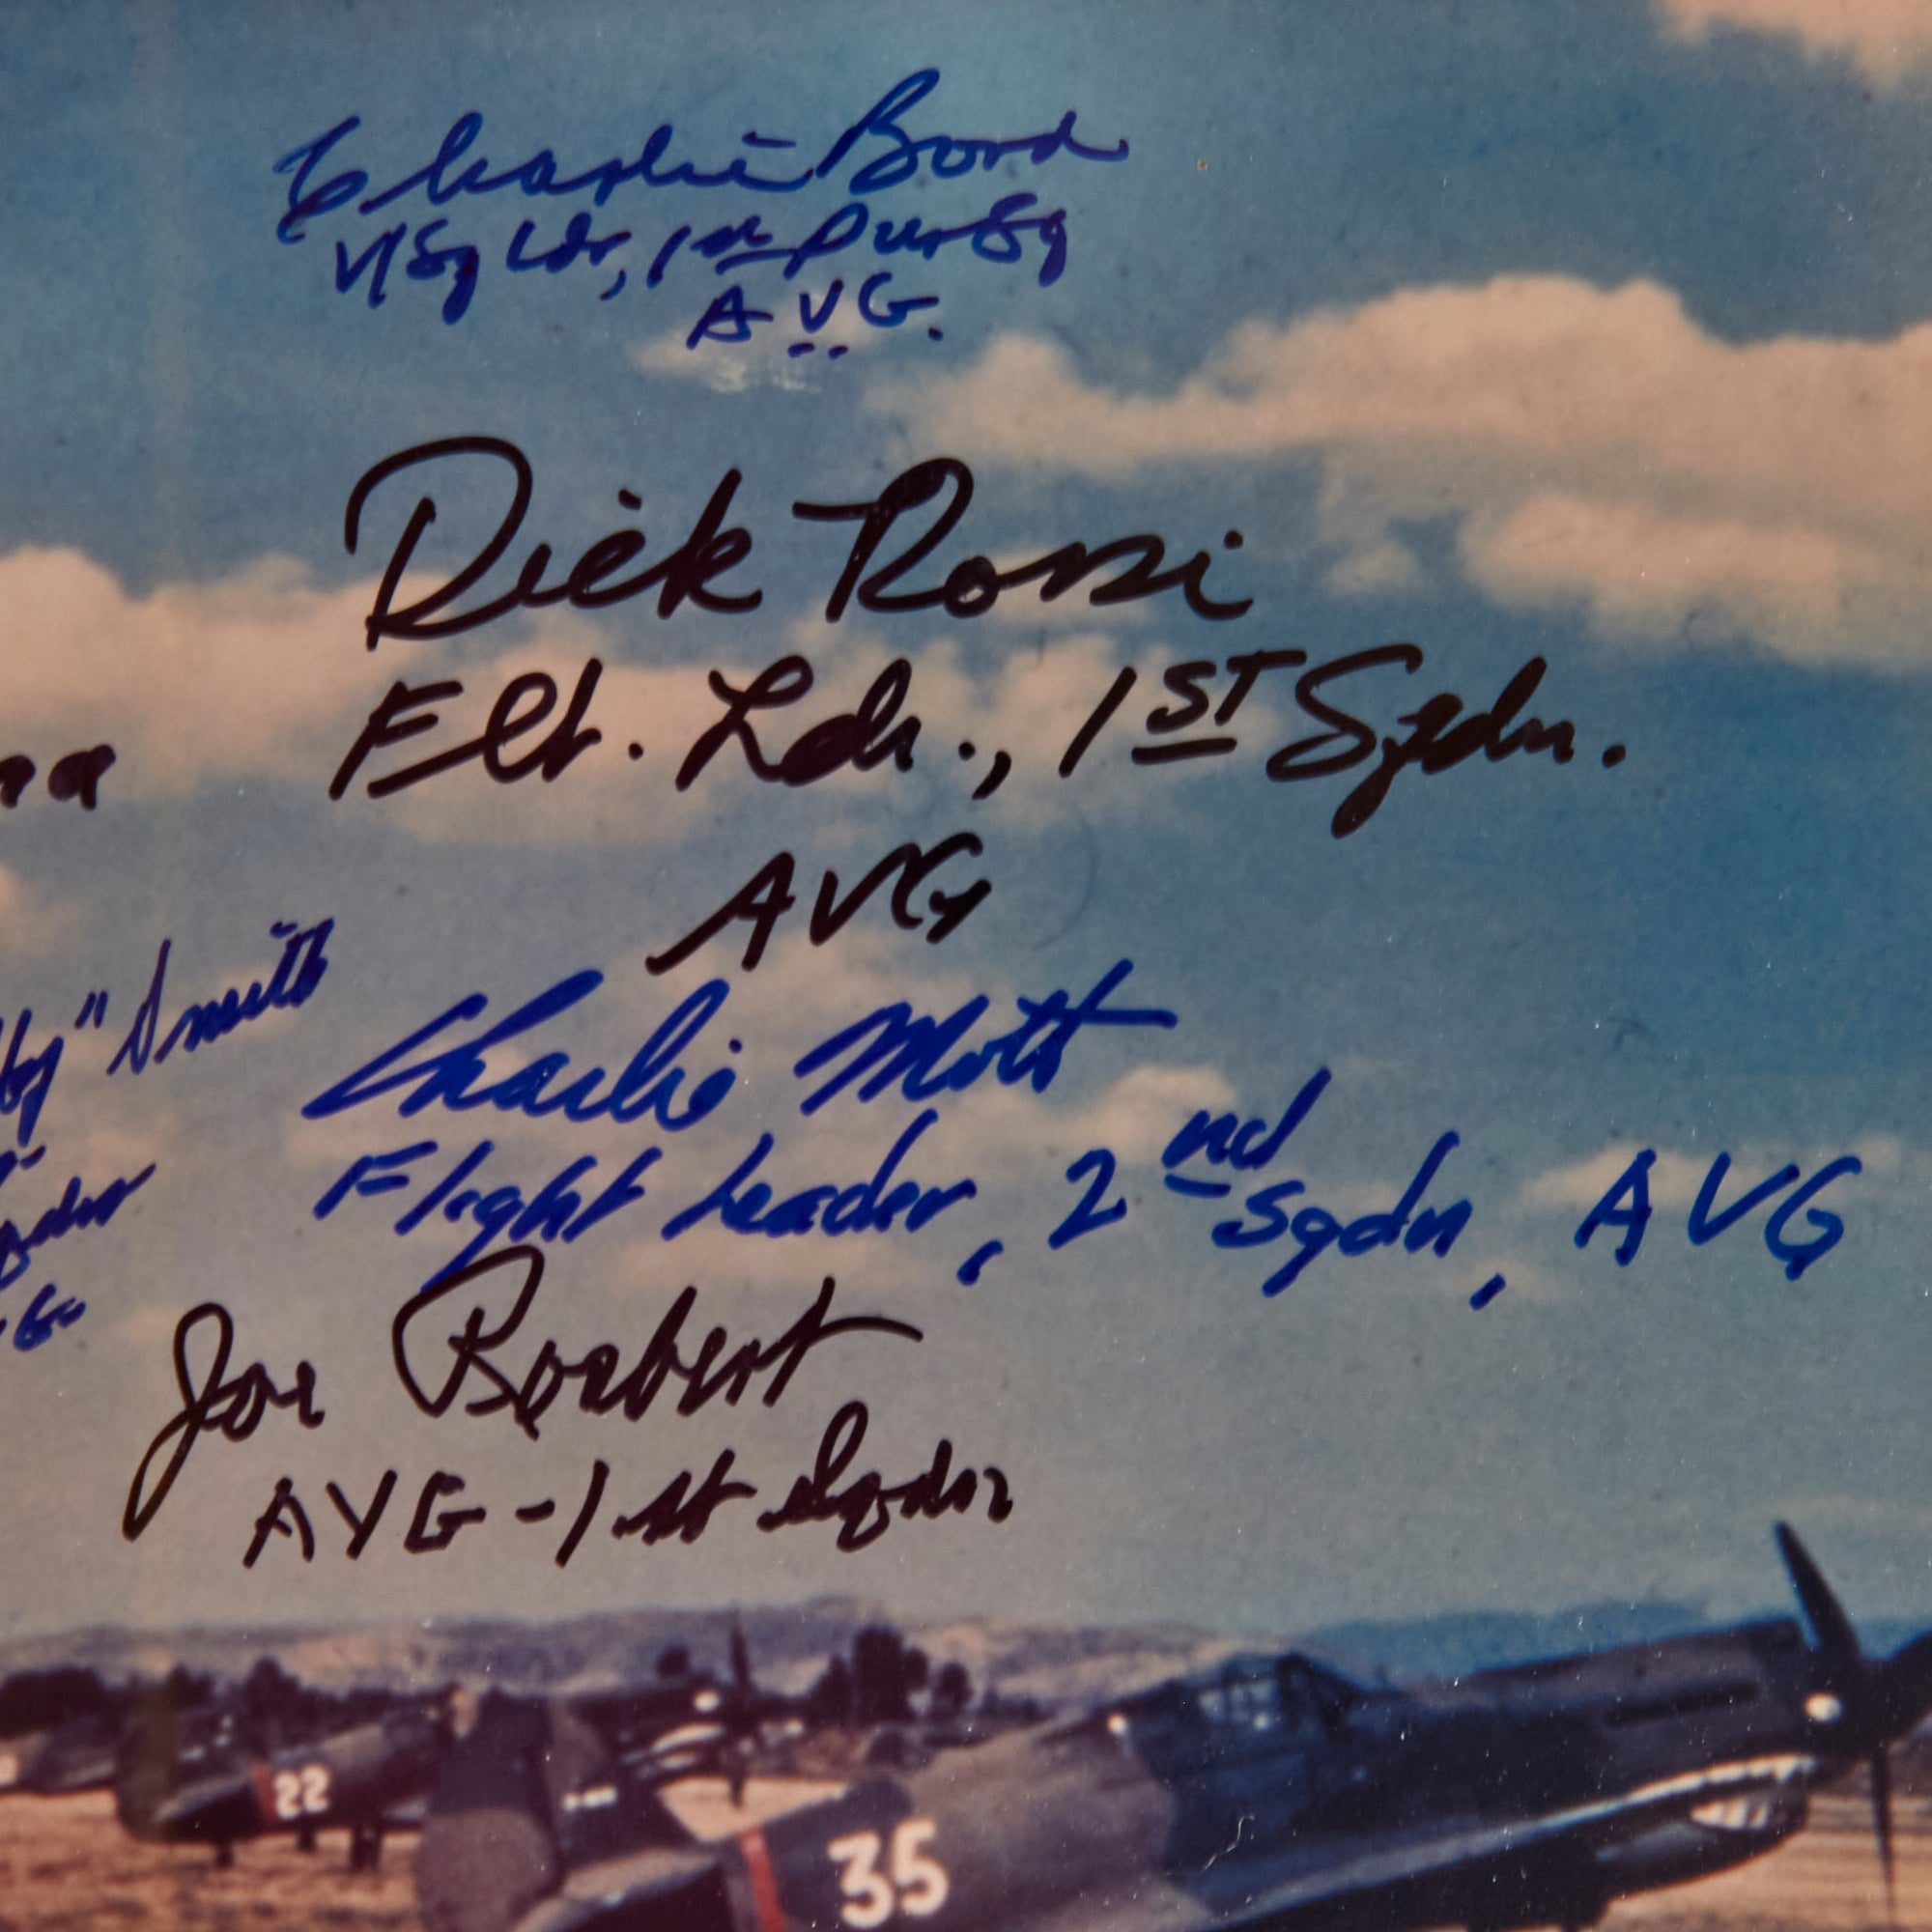 Charlie Bond
V/Sq Ldr, 1st Pur Sq
A V G.
Dick Rossi
Flt. Ldr., 1ST Sqdn.
AVG
Smith
Charlie Mott
Flight Leader, 2nd Sqdn, AVG
Joe Rosbert
AVG - 1st Sqdn
22
35